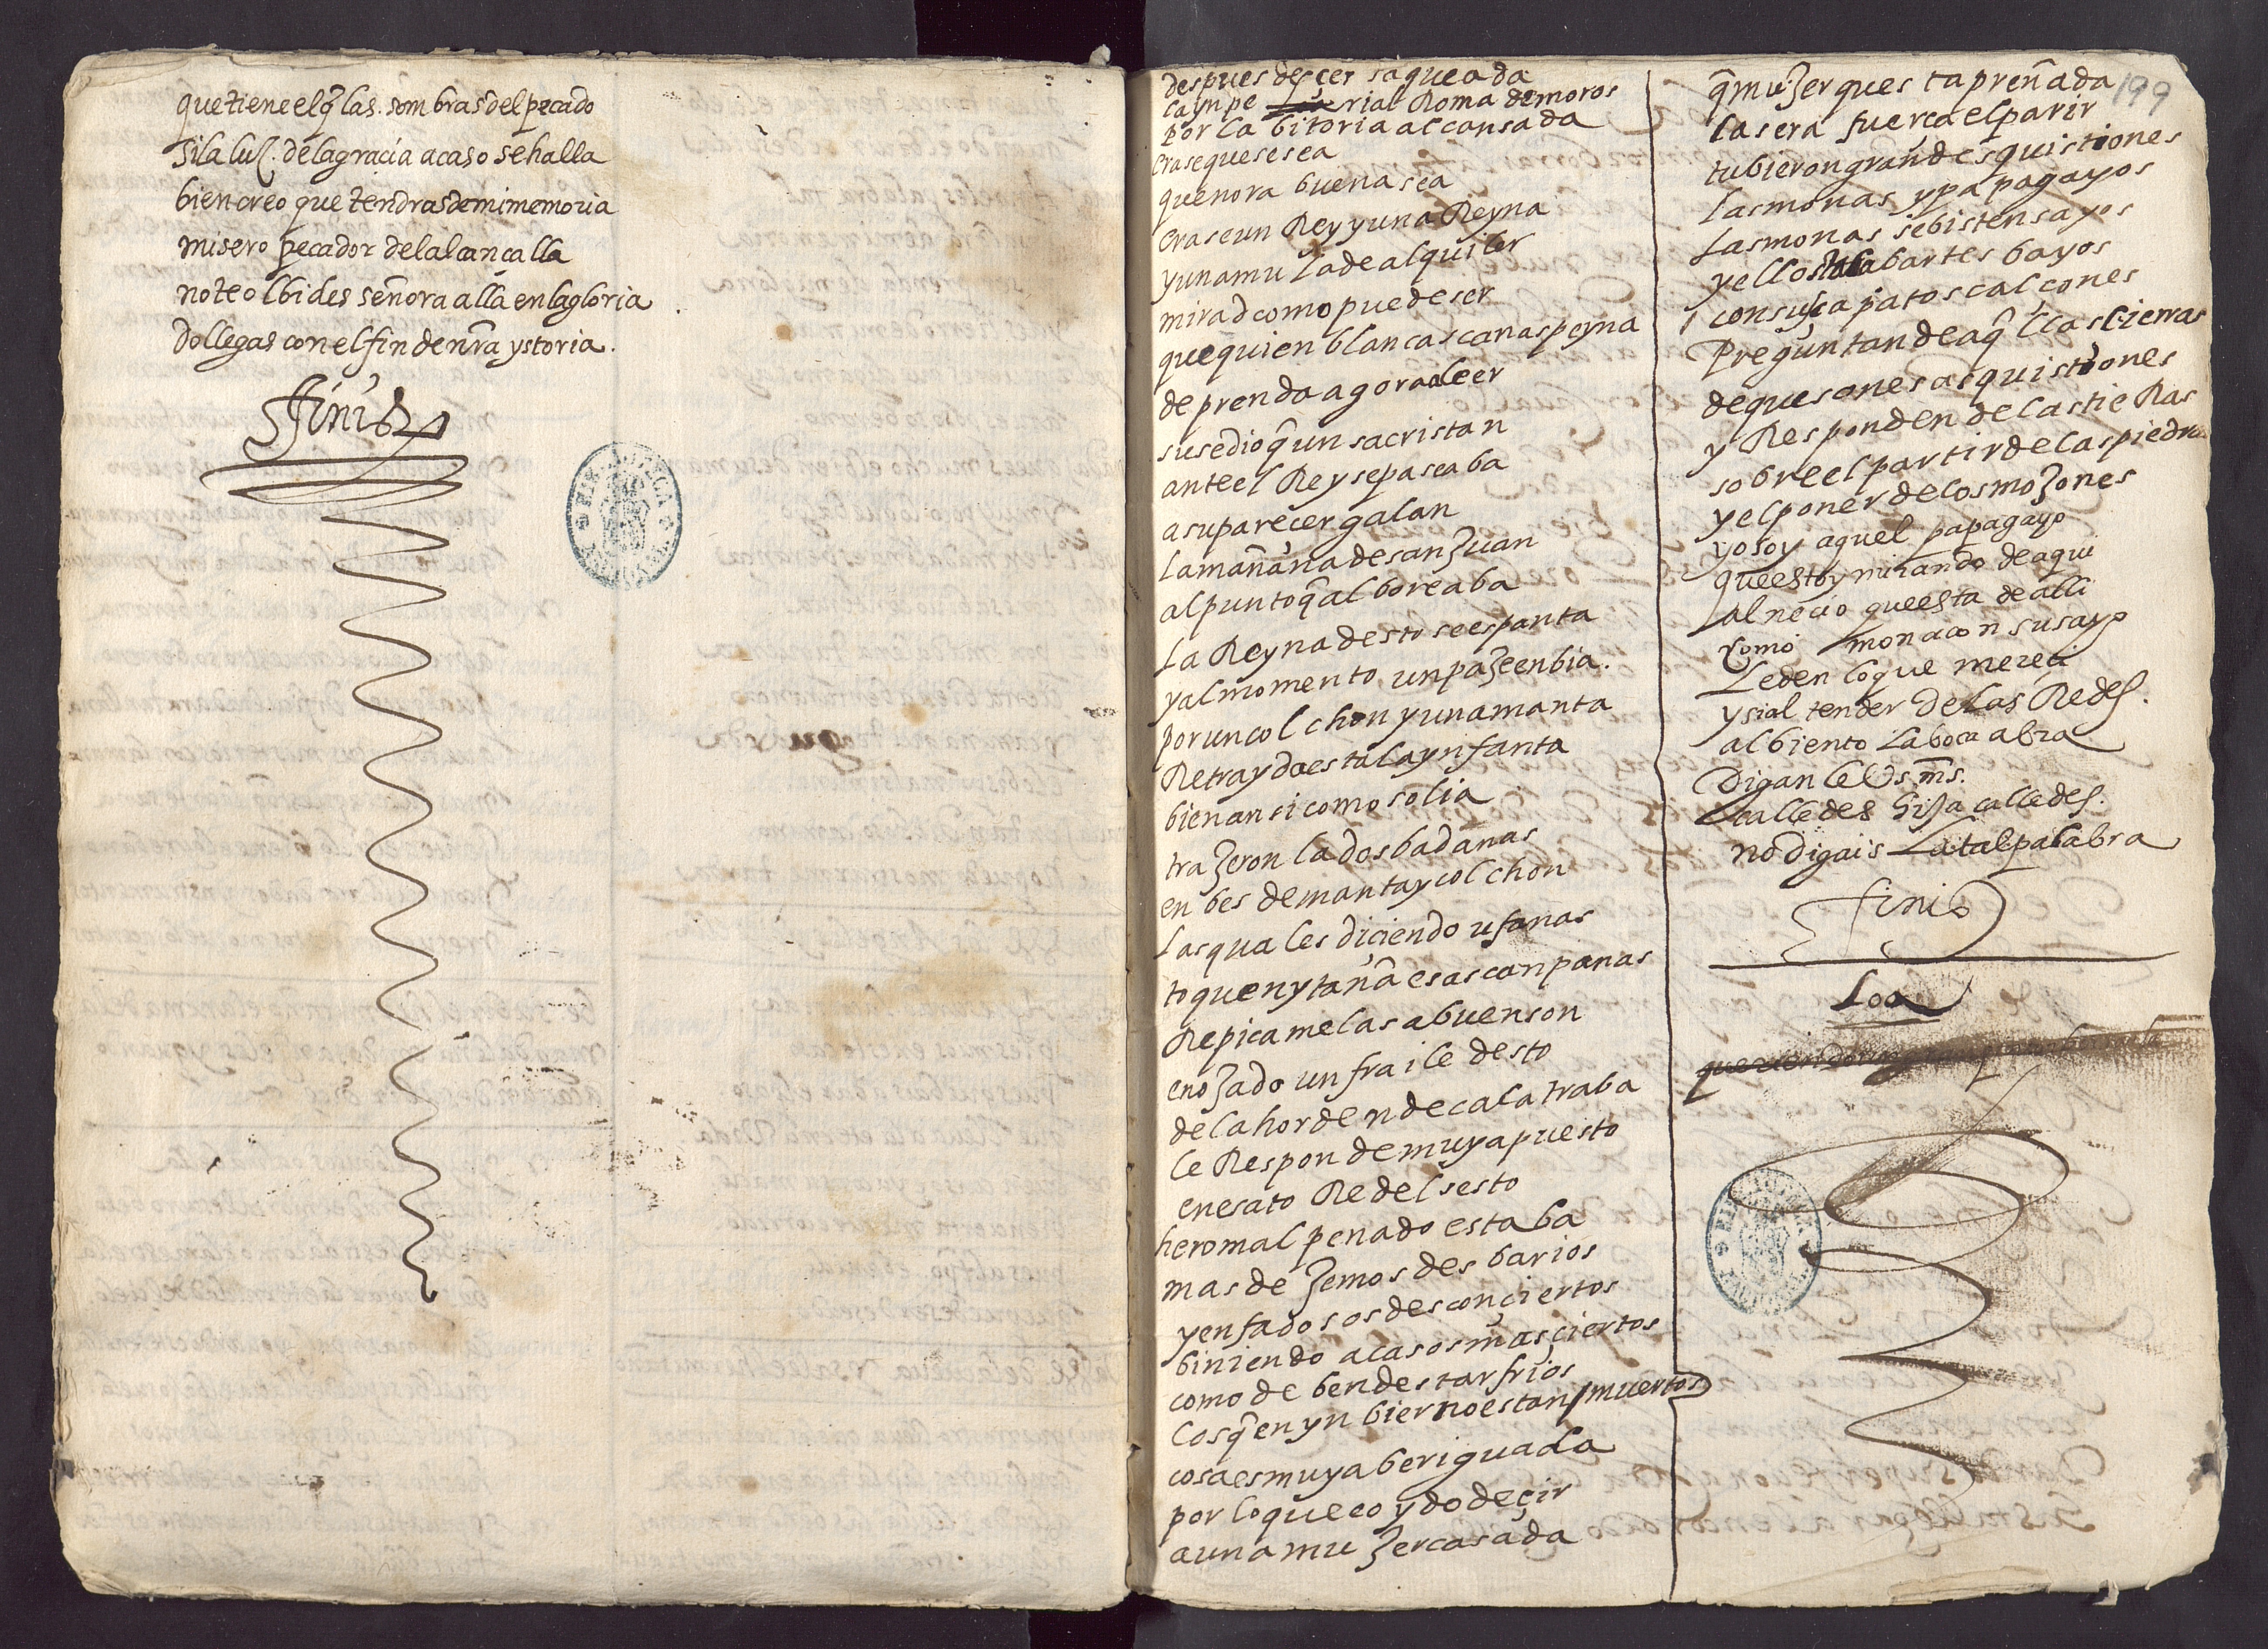 que tiene el q̃ las sombras del pecado
si la luz. de la gracia acaso se halla
bien creo que tendras de mi memoria
misero pecador de la lancalla
no te olbides señora alla en la gloria
do llegas con el fin de nr̃a ystoria.
ffinis
despues de ser saqueada
la ynpe rial Roma de moros
por la bitoria alcansada
erase que se sea
que nora buena sea
erase un Rey y una Reyna
y una mula de alquiler
mirad como puede ser
que quien blancas canas peyna
deprenda agora a leer
susedio q̃ un sacristan
ante el Rey se paseaba
a su pareçer galan
la mañana de san Juan
al punto q̃ alboreaba
la Reyna desto se espanta
y al momento un paje enbia.
por un colchon y una manta
Retrayda esta la ynfanta
bien ansi como solia
trajeron la dos badanas
en bes de manta y colchon
las quales diçiendo ufanas
toquen y tañã esas canpanas
Repicamelas a buen son
enojado un fraile desto
de la horden de calatraba
le Responde muy apuesto
en esato Re del sesto
hero mal penado estaba
mas dejemos desbarios
y enfadosos desconçiertos
biniendo a casos mas çiertos
como deben de star frios
los q̃ en ynbierno estan muertos
cosa es muy aberiguada
por lo que e oydo deçir
a una mujer casada
199
q̃ mujer ques ta preñada
la sera fuerça el parir
tubieron grandes quistiones
las monas y papagayos
las monas se bisten sayos
y ellos talabartes bayos
con su çapatos calçones
Preguntan de aq̃llas tierras
de que son esas quistiones
y Responden de las tieRas
sobre el partir de las piedras
y el poner de los mojones
yo soy aquel papagayo
que estoy mirando de aqui
al neçio que esta de alli
como mona con su sayo
le den lo que mereci
y si al tender de las Redes.
al biento la boca abra
Digan le Vs ms.
calledes hija calledes.
no digais la tal palabra
finis
Loa